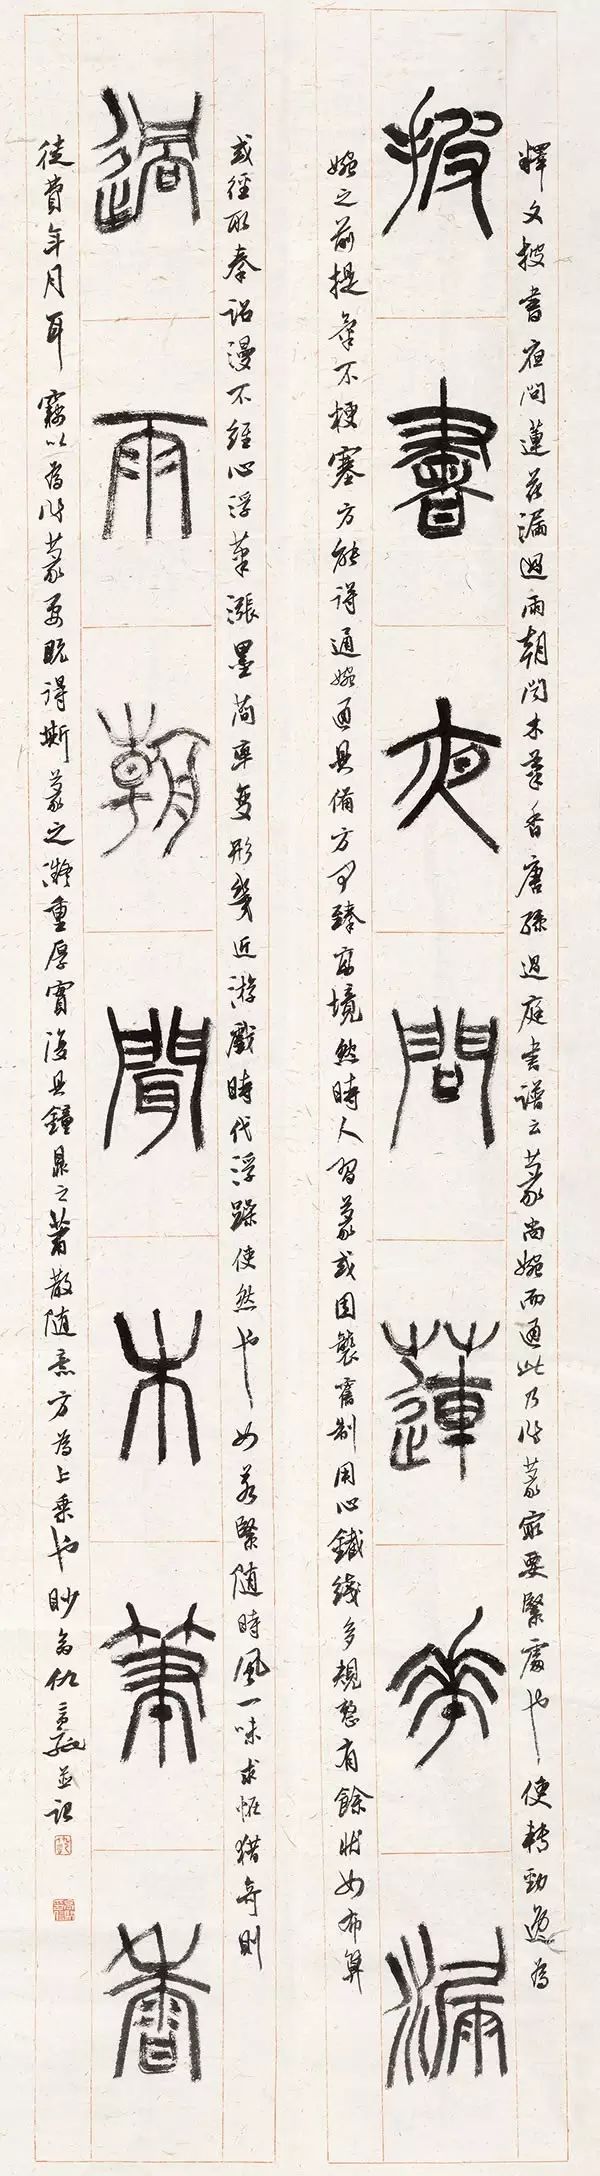 釋文披書夜問蓮花漏過雨朝聞木筆香唐孫過庭書譜云篆尚婉而通此乃作篆最要緊處也使轉勁逸為
披書夜問蓮華漏
婉之前提筆不梗塞方能得通婉通具備方可臻高境然時人習篆或因襲舊制用心鐵綫多規整有餘狀如布算
或徑取秦詔漫不經心浮筆漲墨簡率變形幾近游戲時代浮躁使然也如若緊隨時風一味求怪獵奇則
過雨朝聞木筆香
徒費年月耳竊以為作篆要既得斯篆之凝重厚實復具鐘鼎之蕭散隨意方為上乘也眇翁仇高馳並記